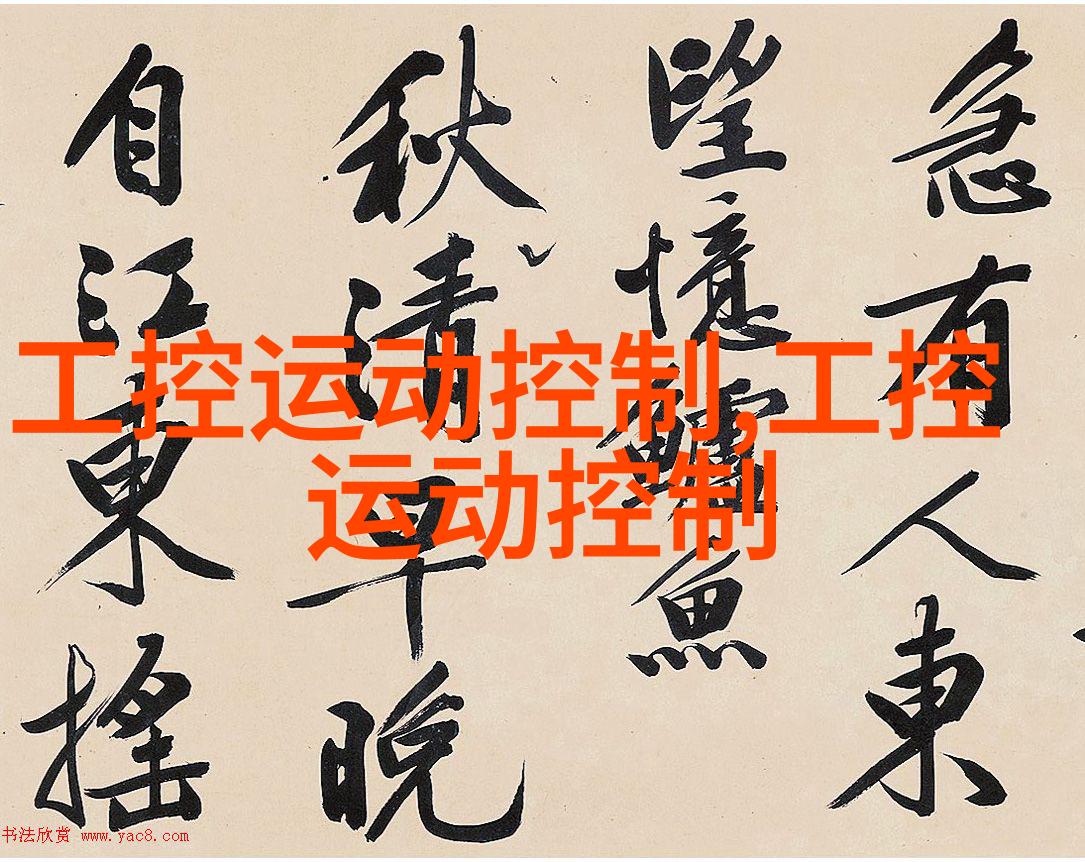 急有人東
望憶鱸魚
秋清早晚
自江東搖
工控运动控制,工控
运动控制
书法欣赏 www.yac8.com